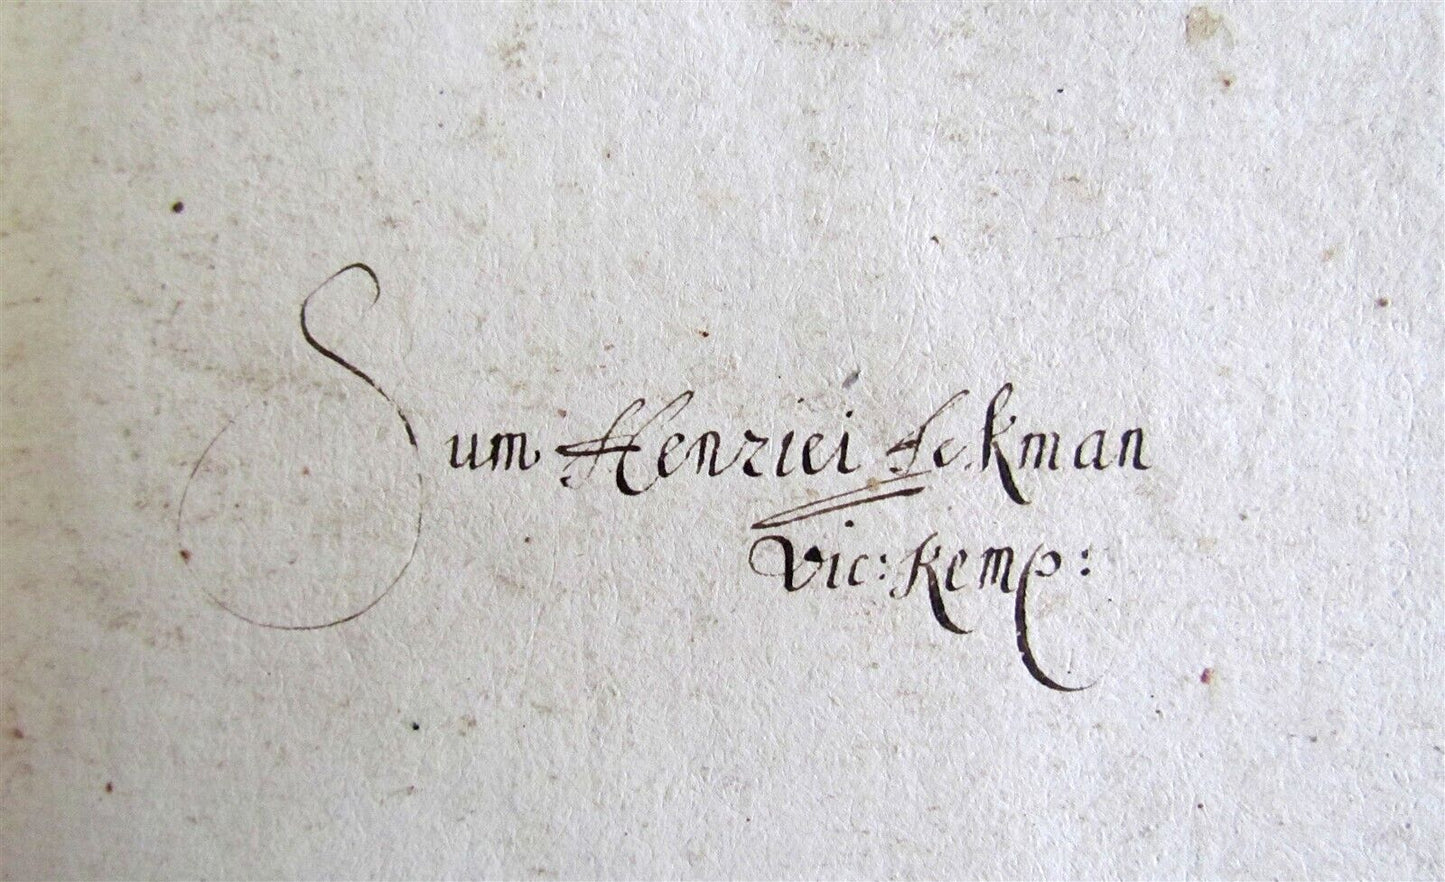 Sum Henrici Eckman
Vic: Kemp: